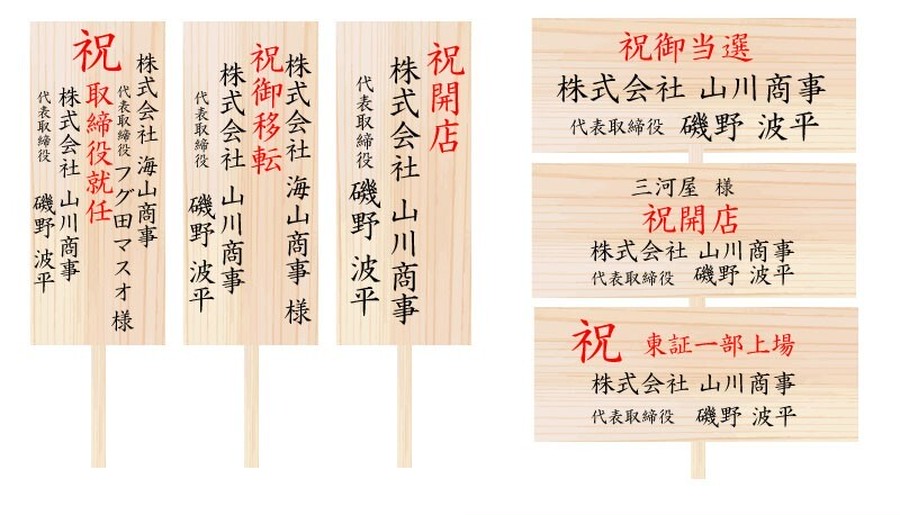 株式会社 海山商事
代表取締役 フグ田マスオ 様
祝 取締役就任
株式会社 山川商事
代表取締役 磯野 波平
株式会社 海山商事 様
祝御移転
株式会社 山川商事
代表取締役 磯野 波平
祝開店
株式会社 山川商事
代表取締役 磯野 波平
祝御当選
株式会社 山川商事
代表取締役 磯野 波平
三河屋 様
祝開店
株式会社 山川商事
代表取締役 磯野 波平
祝 東証一部上場
株式会社 山川商事
代表取締役 磯野 波平